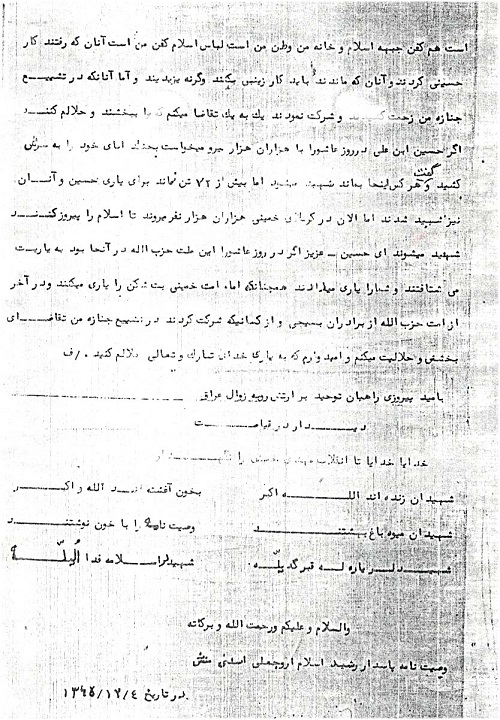 است هم کفن جبهه اسلام و خانه من وطن من است لباس اسلام کفن من است آنان که رفتند کار
حسینی کردند و آنان که ماندند باید کار زینبی بکنند وگرنه یزیدیند و اما آنانکه در تشییع
جنازه من زحمت و شرکت نمودند یك به یك تقاضا میکنم که ببخشند و حلالم کنند
اگر حسین ابن علی در روز عاشورا با هزاران هزار نیرو میخواست بجنگد امای خود را به سرش
کشید و گفت هر کس اینجا بماند شهید میشود اما بیش از ۷۲ تن نماند برای یاری حسین و آنان
نیز شهید شدند اما الان در کربلای خمینی هزاران هزار نفر میروند تا اسلام را پیروز کنند
شهید میشوند ای حسین عزیز اگر در روز عاشورا این ملت حزب الله در آنجا بود به یاریت
می شتافتند و شما را یاری میدادند همچنانکه امام امت خمینی بت شکن را یاری میکنند و در آخر
از امت حزب الله از برادران بسیجی و از کسانیکه شرکت کردند در تشییع جنازه من تقاضای
بخشش و حلالیت میکنم و امید وارم که به یاری خدای تبارك و تعالی حلالم کنید . /ف
بامید پیروزی راهیان توحید بر ارتش روبه زوال عراق
دیدار در قیامت
خدایا خدایا تا انقلاب مهدی خمینی را نگهدار
شهیدان زنده اند الله اکبر بخون آغشته اند الله و اکبر
شهیدان میوه باغ بهشتند وصیت نامه را با خون نوشتند
شهید لر یاره له قبر گدیله شهید لر اسلامه فدا
والسلام و علیکم ورحمت الله و برکاته
وصیت نامه پاسدار رشید اسلام اروجعلی اسدی منش
در تاریخ ۱۳۶۵/۱۲/۴